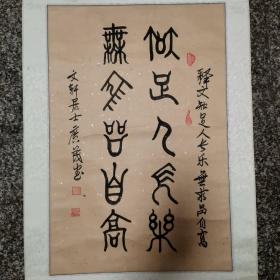 釋文知足人长乐 無求品自高
知足人長樂
無求品自高
文軒居士廣茂书